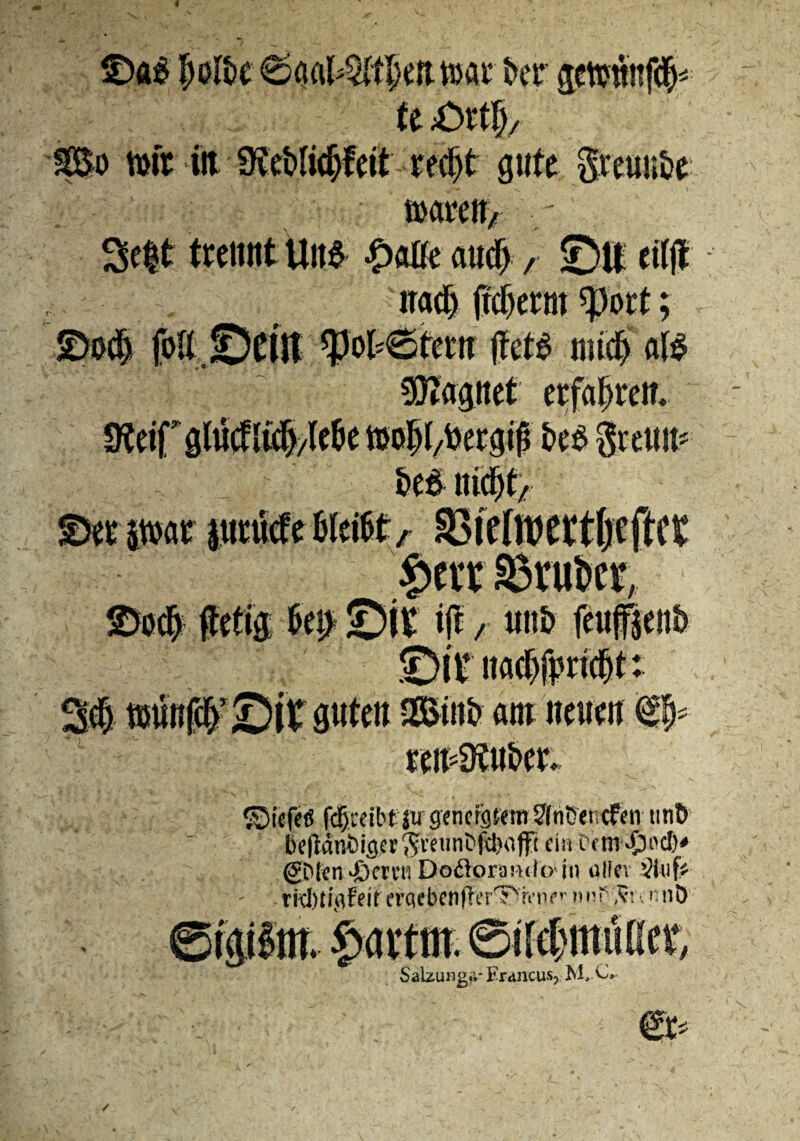 Das holde Saal-Athen war der gewünsch-
te Orth,
Wo wir in Redlichkeit recht gute Freunde
waren,
Jetzt trennt Uns Halle auch, DU eilst
nach sicherm Port;
Doch soll DEin Pol-Stern stets mich als
Magnet erfahren.
Reis' glücklich/lebe wohl/vergiß des Freun-
des nicht,
Der zwar zurücke bleibt, Vielwerthester
Herr Bruder,
Doch stetig bey DIr ist, und seuffzend
DIr nachspricht:
Ich wünsch' DIr guten Wind am neuen Eh-
ren-Ruder.
Dieses schreibt zu geneigtem Andencken und
beständiger Freundschafft ein Dem Hoch-
Edlen Herrn Doctorando in aller Auf-
richtigkeit ergebenster Diener und Freund
Sigism. Hartm. Silchmüller,
Salzunga-Francus, M. C.
Er-